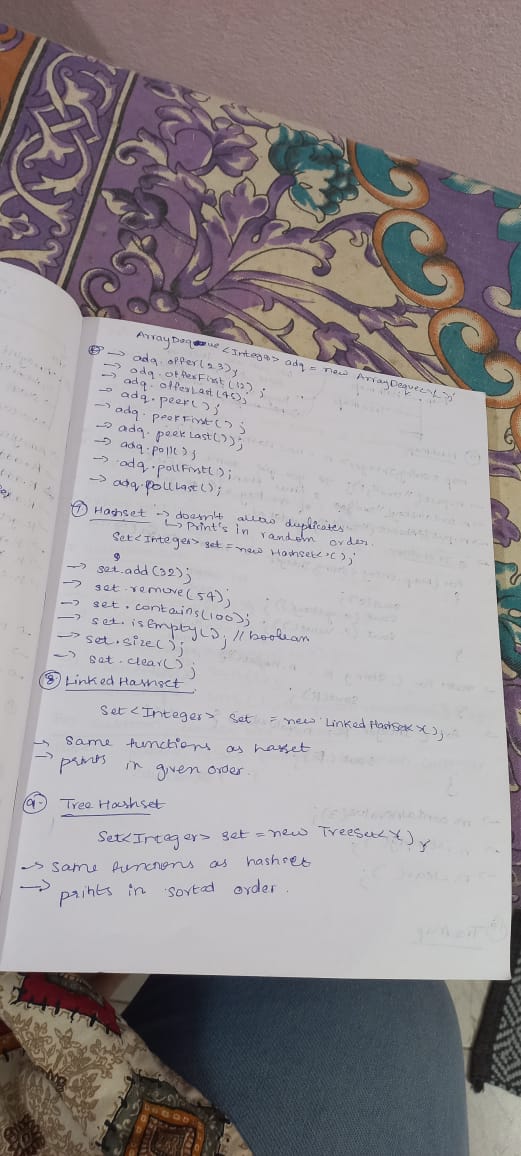 ArrayDeque<Integer> adq = new ArrayDeque<>();
→ adq.offer(23);
→ adq.offerFirst(12);
→ adq.offerLast(45);
→ adq.peek();
→ adq.peekFirst();
→ adq.peekLast());
→ adq.poll();
→ adq.pollFirst();
→ adq.pollLast();
⑦ Hashset → doesn't allow duplicates
↳ Print's in random order.
Set<Integer> set = new Hashset<>();
→ set.add(32);
→ set.remove(54);
→ set.contains(100);
→ set.isEmpty(); // boolean
→ set.size();
→ set.clear();
⑧ Linked Hashset
Set<Integer> set = new Linked HashSet<>();
→ Same functions as hasset
→ prints in given order.
⑨ Tree Hashset
Set<Integer> set = new TreeSet<>();
→ Same functions as hashset
→ prints in sorted order.